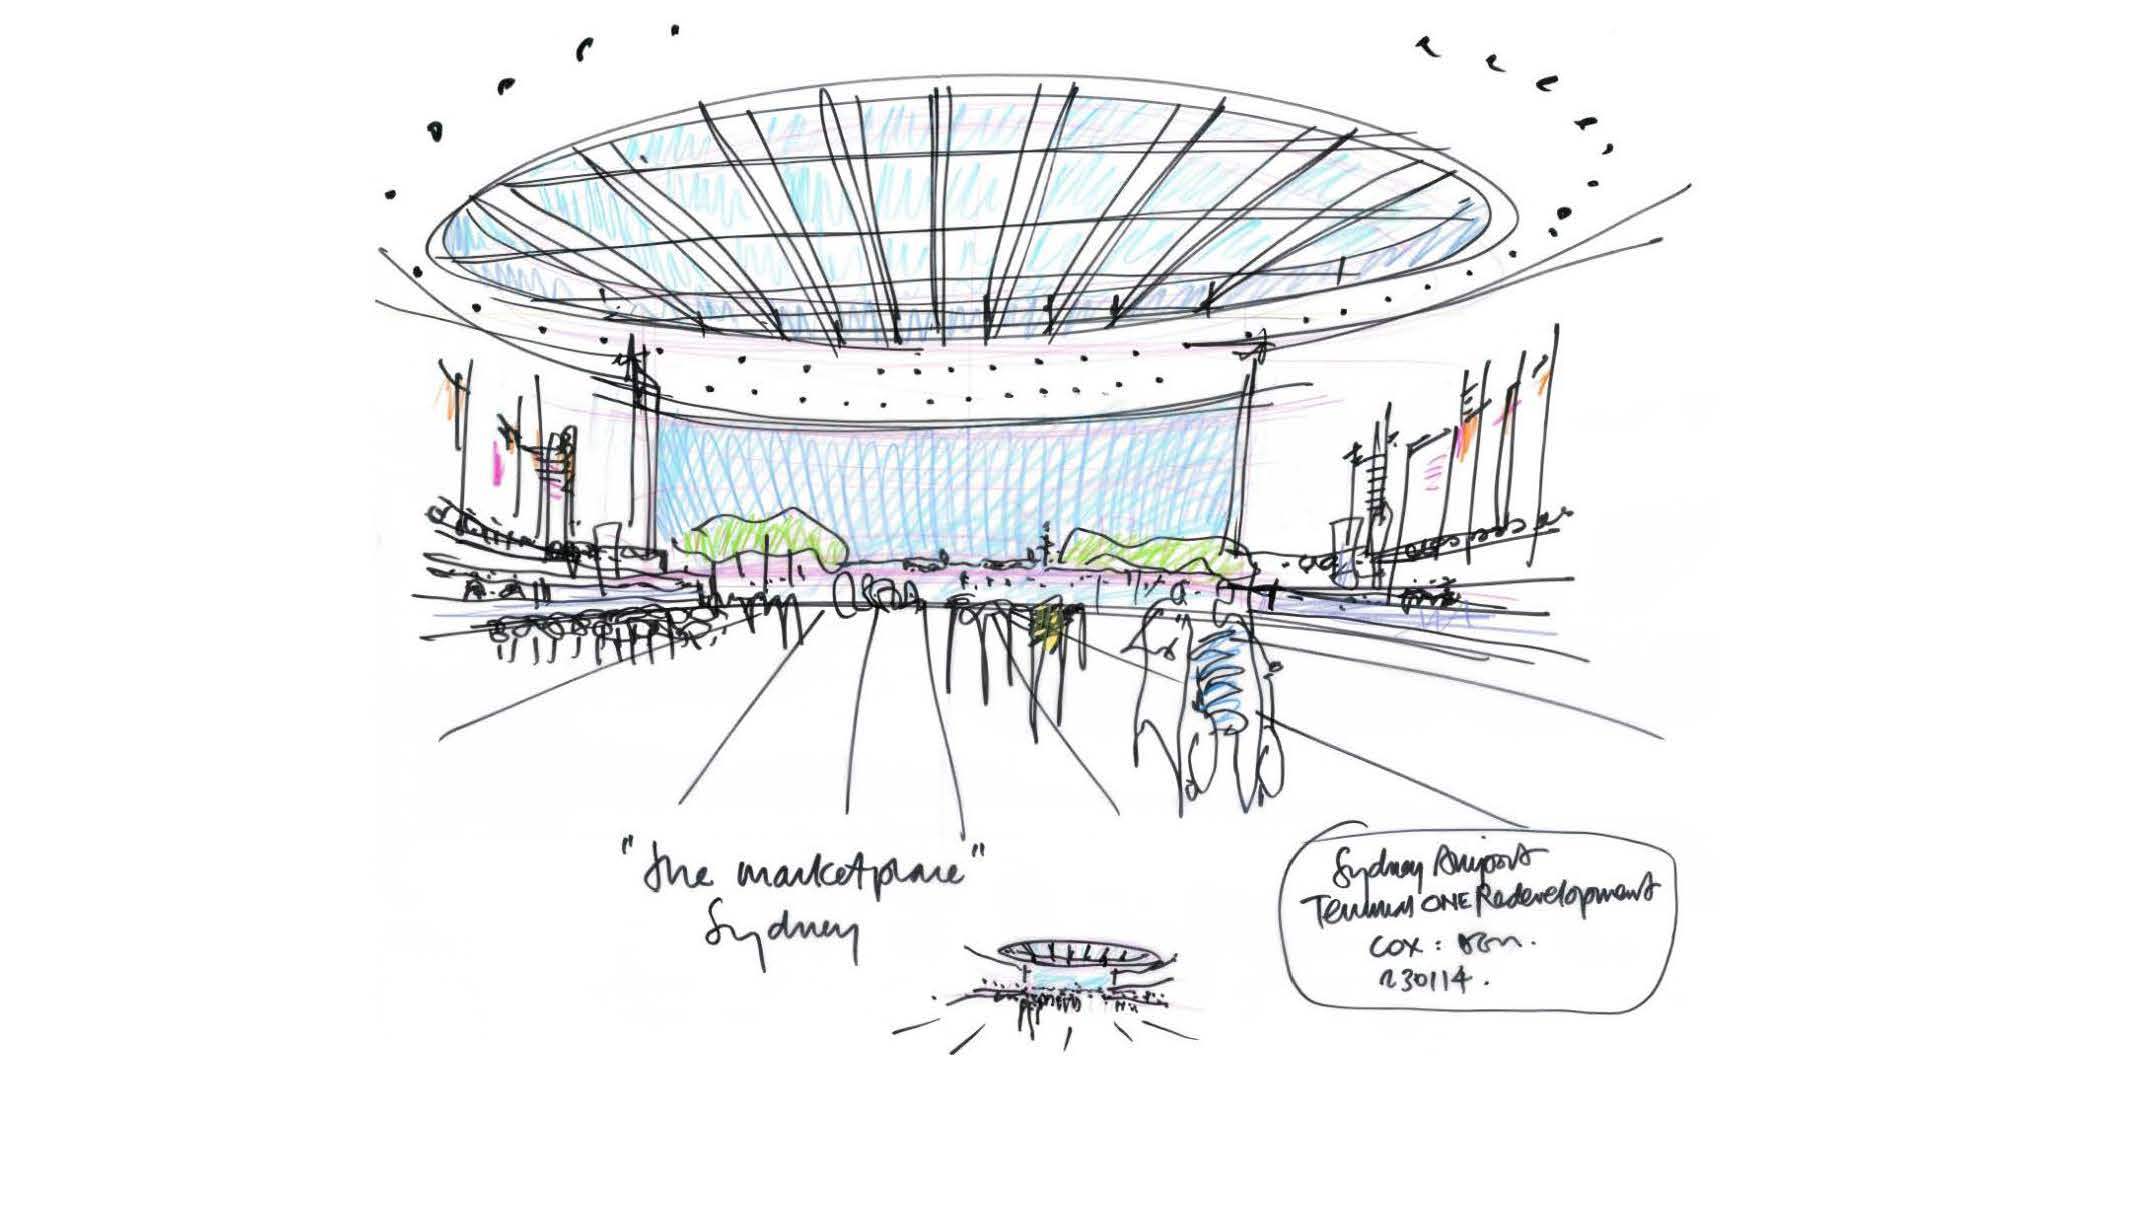 "the marketplace"
Sydney
Sydney Airport
Terminal ONE Redevelopment
COX :
230114.